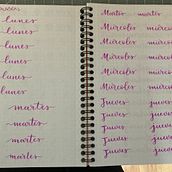 lunes
lunes
lunes
lunes
lunes
lunes
martes
martes
martes
martes
Martes martes
Miércoles miércoles
Miércoles miércoles
Miércoles miércoles
Miércoles miércoles
Jueves jueves
Jueves jueves
Jueves jueves
Jueves jueves
Jueves jueves